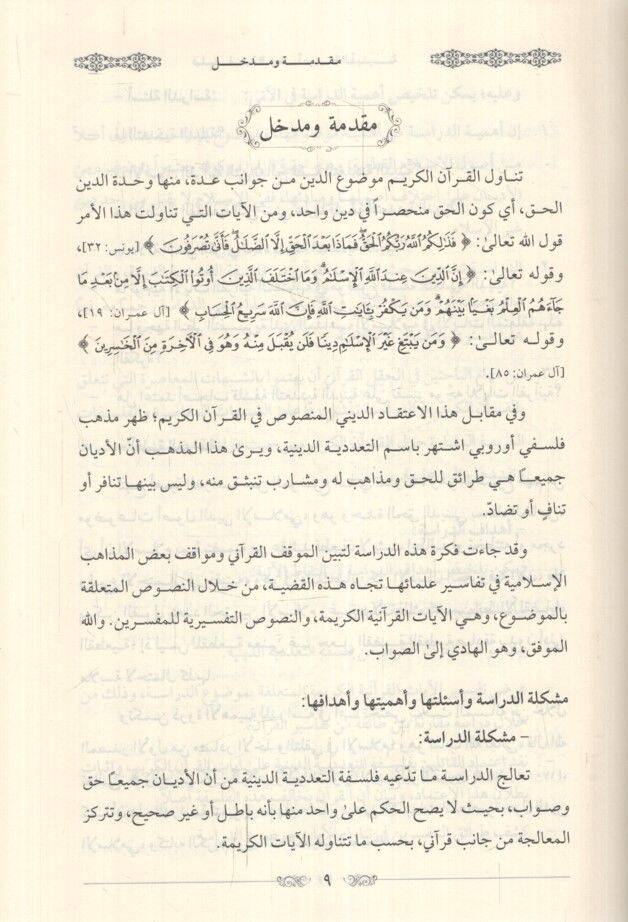 مقدمة ومدخل
مقدمة ومدخل
تناول القرآن الكريم موضوع الدين من جوانب عدة، منها وحدة الدين
الحق، أي كون الحق منحصراً في دين واحد، ومن الآيات التي تناولت هذا الأمر
قول الله تعالىٰ: ﴿ فَذَٰلِكُمُ ٱللَّهُ رَبُّكُمُ ٱلْحَقُّ ۖ فَمَاذَا بَعْدَ ٱلْحَقِّ إِلَّا ٱلضَّلَٰلُ ۖ فَأَنَّىٰ تُصْرَفُونَ ﴾ [يونس: ٣٢]،
وقوله تعالىٰ: ﴿ إِنَّ ٱلدِّينَ عِندَ ٱللَّهِ ٱلْإِسْلَٰمُ ۗ وَمَا ٱخْتَلَفَ ٱلَّذِينَ أُوتُوا۟ ٱلْكِتَٰبَ إِلَّا مِنۢ بَعْدِ مَا
جَآءَهُمُ ٱلْعِلْمُ بَغْيًۢا بَيْنَهُمْ ۗ وَمَن يَكْفُرْ بِـَٔايَٰتِ ٱللَّهِ فَإِنَّ ٱللَّهَ سَرِيعُ ٱلْحِسَابِ ﴾ [آل عمران: ١٩]،
وقوله تعالىٰ: ﴿ وَمَن يَبْتَغِ غَيْرَ ٱلْإِسْلَٰمِ دِينًا فَلَن يُقْبَلَ مِنْهُ وَهُوَ فِي ٱلْآخِرَةِ مِنَ ٱلْخَٰسِرِينَ ﴾
[آل عمران: ٨٥].
وفي مقابل هذا الاعتقاد الديني المنصوص في القرآن الكريم؛ ظهر مذهب
فلسفي أوروبي اشتهر باسم التعددية الدينية، ويرىٰ هذا المذهب أنّ الأديان
جميعـًا هي طرائق للحق ومذاهب له ومشارب تنبثق منه، وليس بينها تنافر أو
تنافٍ أو تضادّ.
وقد جاءت فكرة هذه الدراسة لتبين الموقف القرآني ومواقف بعض المذاهب
الإسلامية في تفاسير علمائها تجاه هذه القضية، من خلال النصوص المتعلقة
بالموضوع، وهي الآيات القرآنية الكريمة، والنصوص التفسيرية للمفسرين. والله
الموفق، وهو الهادي إلىٰ الصواب.
مشكلة الدراسة وأسئلتها وأهميتها وأهدافها:
– مشكلة الدراسة:
تعالج الدراسة ما تدّعيه فلسفة التعددية الدينية من أن الأديان جميعـًا حق
وصواب، بحيث لا يصح الحكم علىٰ واحد منها بأنه باطل أو غير صحيح، وتتركز
المعالجة من جانب قرآني، بحسب ما تتناوله الآيات الكريمة.
٩